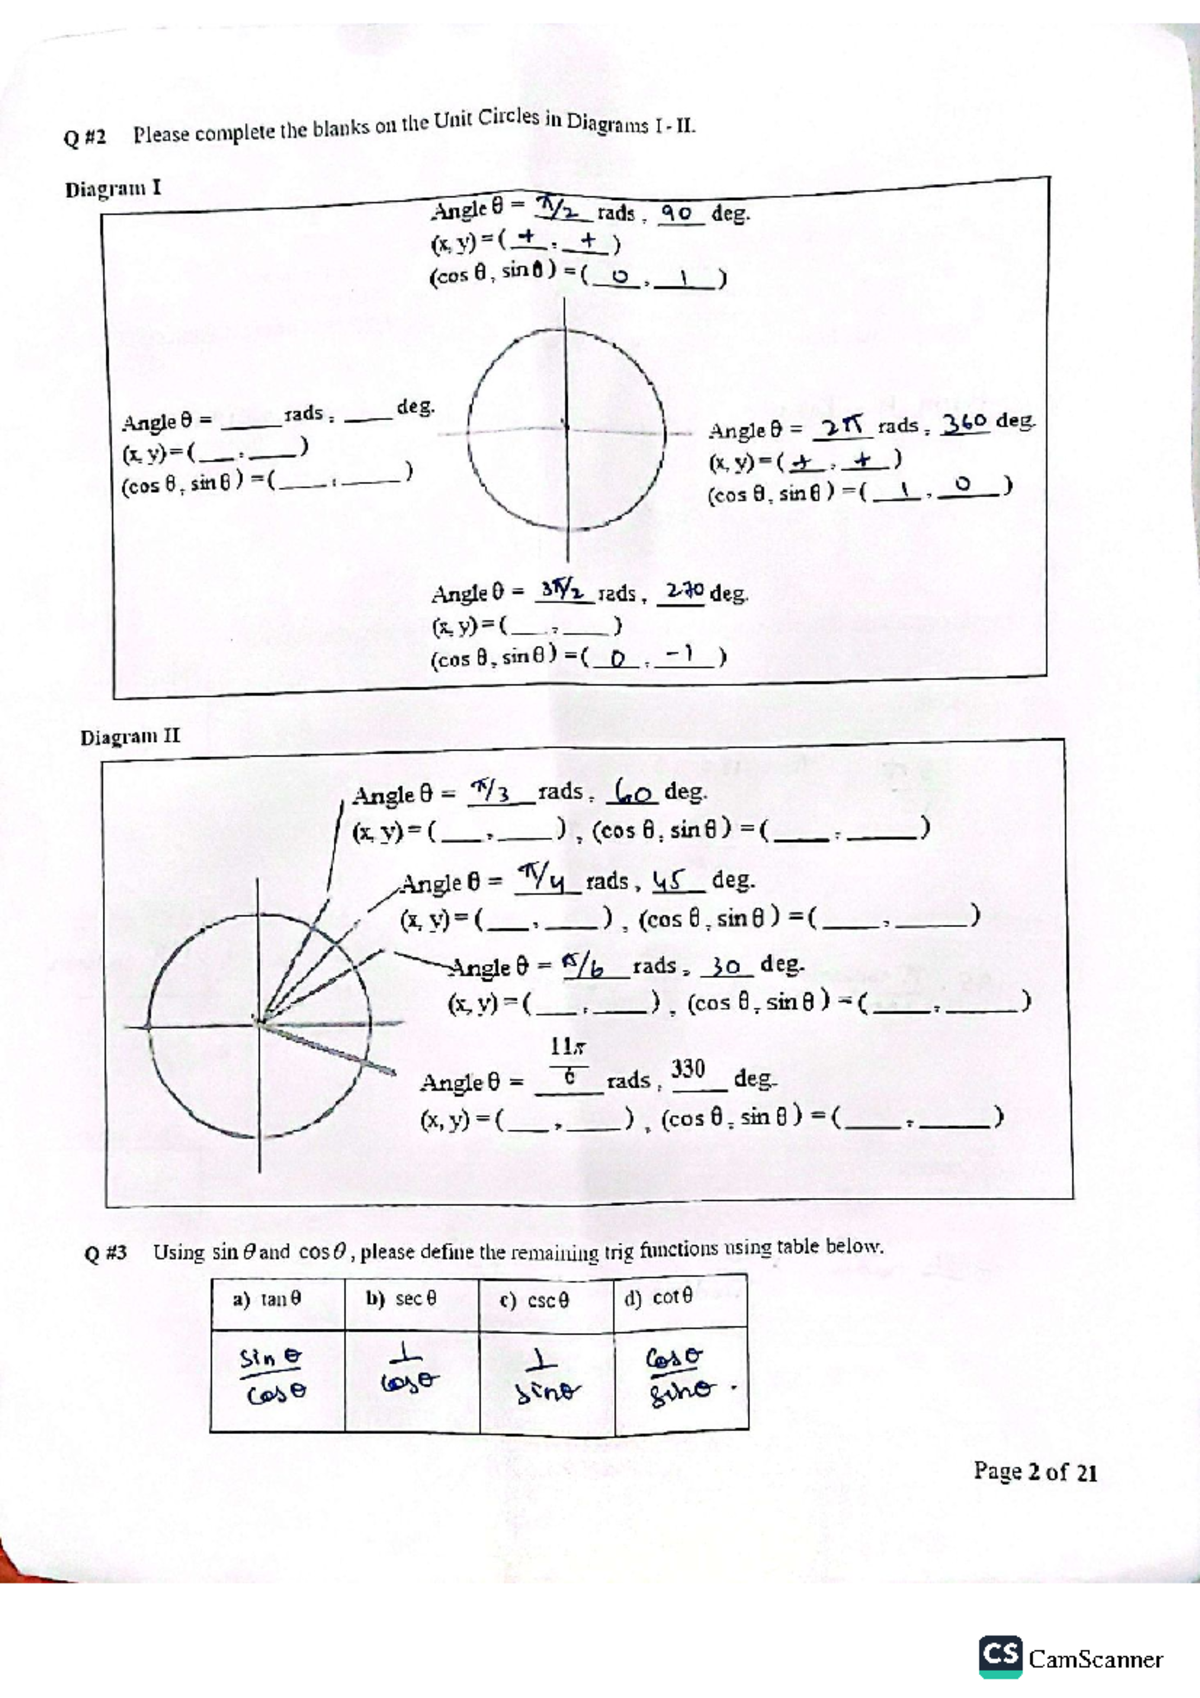 Q #2 Please complete the blanks on the Unit Circles in Diagrams I - II.
Diagram I
Angle θ = π/2 rads , 90 deg.
(x, y) = ( + , + )
(cos θ , sin θ ) = ( 0 , 1 )
Angle θ = _____ rads , ____ deg.
(x, y) = ( ___ , ____ )
(cos θ , sin θ ) = ( ____ , _____ )
Angle θ = 2π rads , 360 deg.
(x, y) = ( + , + )
(cos θ , sin θ ) = ( 1 , 0 )
Angle θ = 3π/2 rads , 270 deg.
(x, y) = ( ___ , ____ )
(cos θ , sin θ ) = ( 0 , -1 )
Diagram II
Angle θ = π/3 rads , 60 deg.
(x, y) = ( ___ , ____ ) , (cos θ , sin θ ) = ( ____ , _____ )
Angle θ = π/4 rads , 45 deg.
(x, y) = ( ___ , ____ ) , (cos θ , sin θ ) = ( ____ , _____ )
Angle θ = π/6 rads , 30 deg.
(x, y) = ( ___ , ____ ) , (cos θ , sin θ ) = ( ____ , _____ )
Angle θ = 11π/6 rads , 330 deg.
(x, y) = ( ___ , ____ ) , (cos θ , sin θ ) = ( ____ , _____ )
Q #3 Using sin θ and cos θ , please define the remaining trig functions using table below.
a) tan θ b) sec θ c) csc θ d) cot θ
sin θ / cos θ 1 / cos θ 1 / sin θ cos θ / sin θ .
Page 2 of 21
CS CamScanner